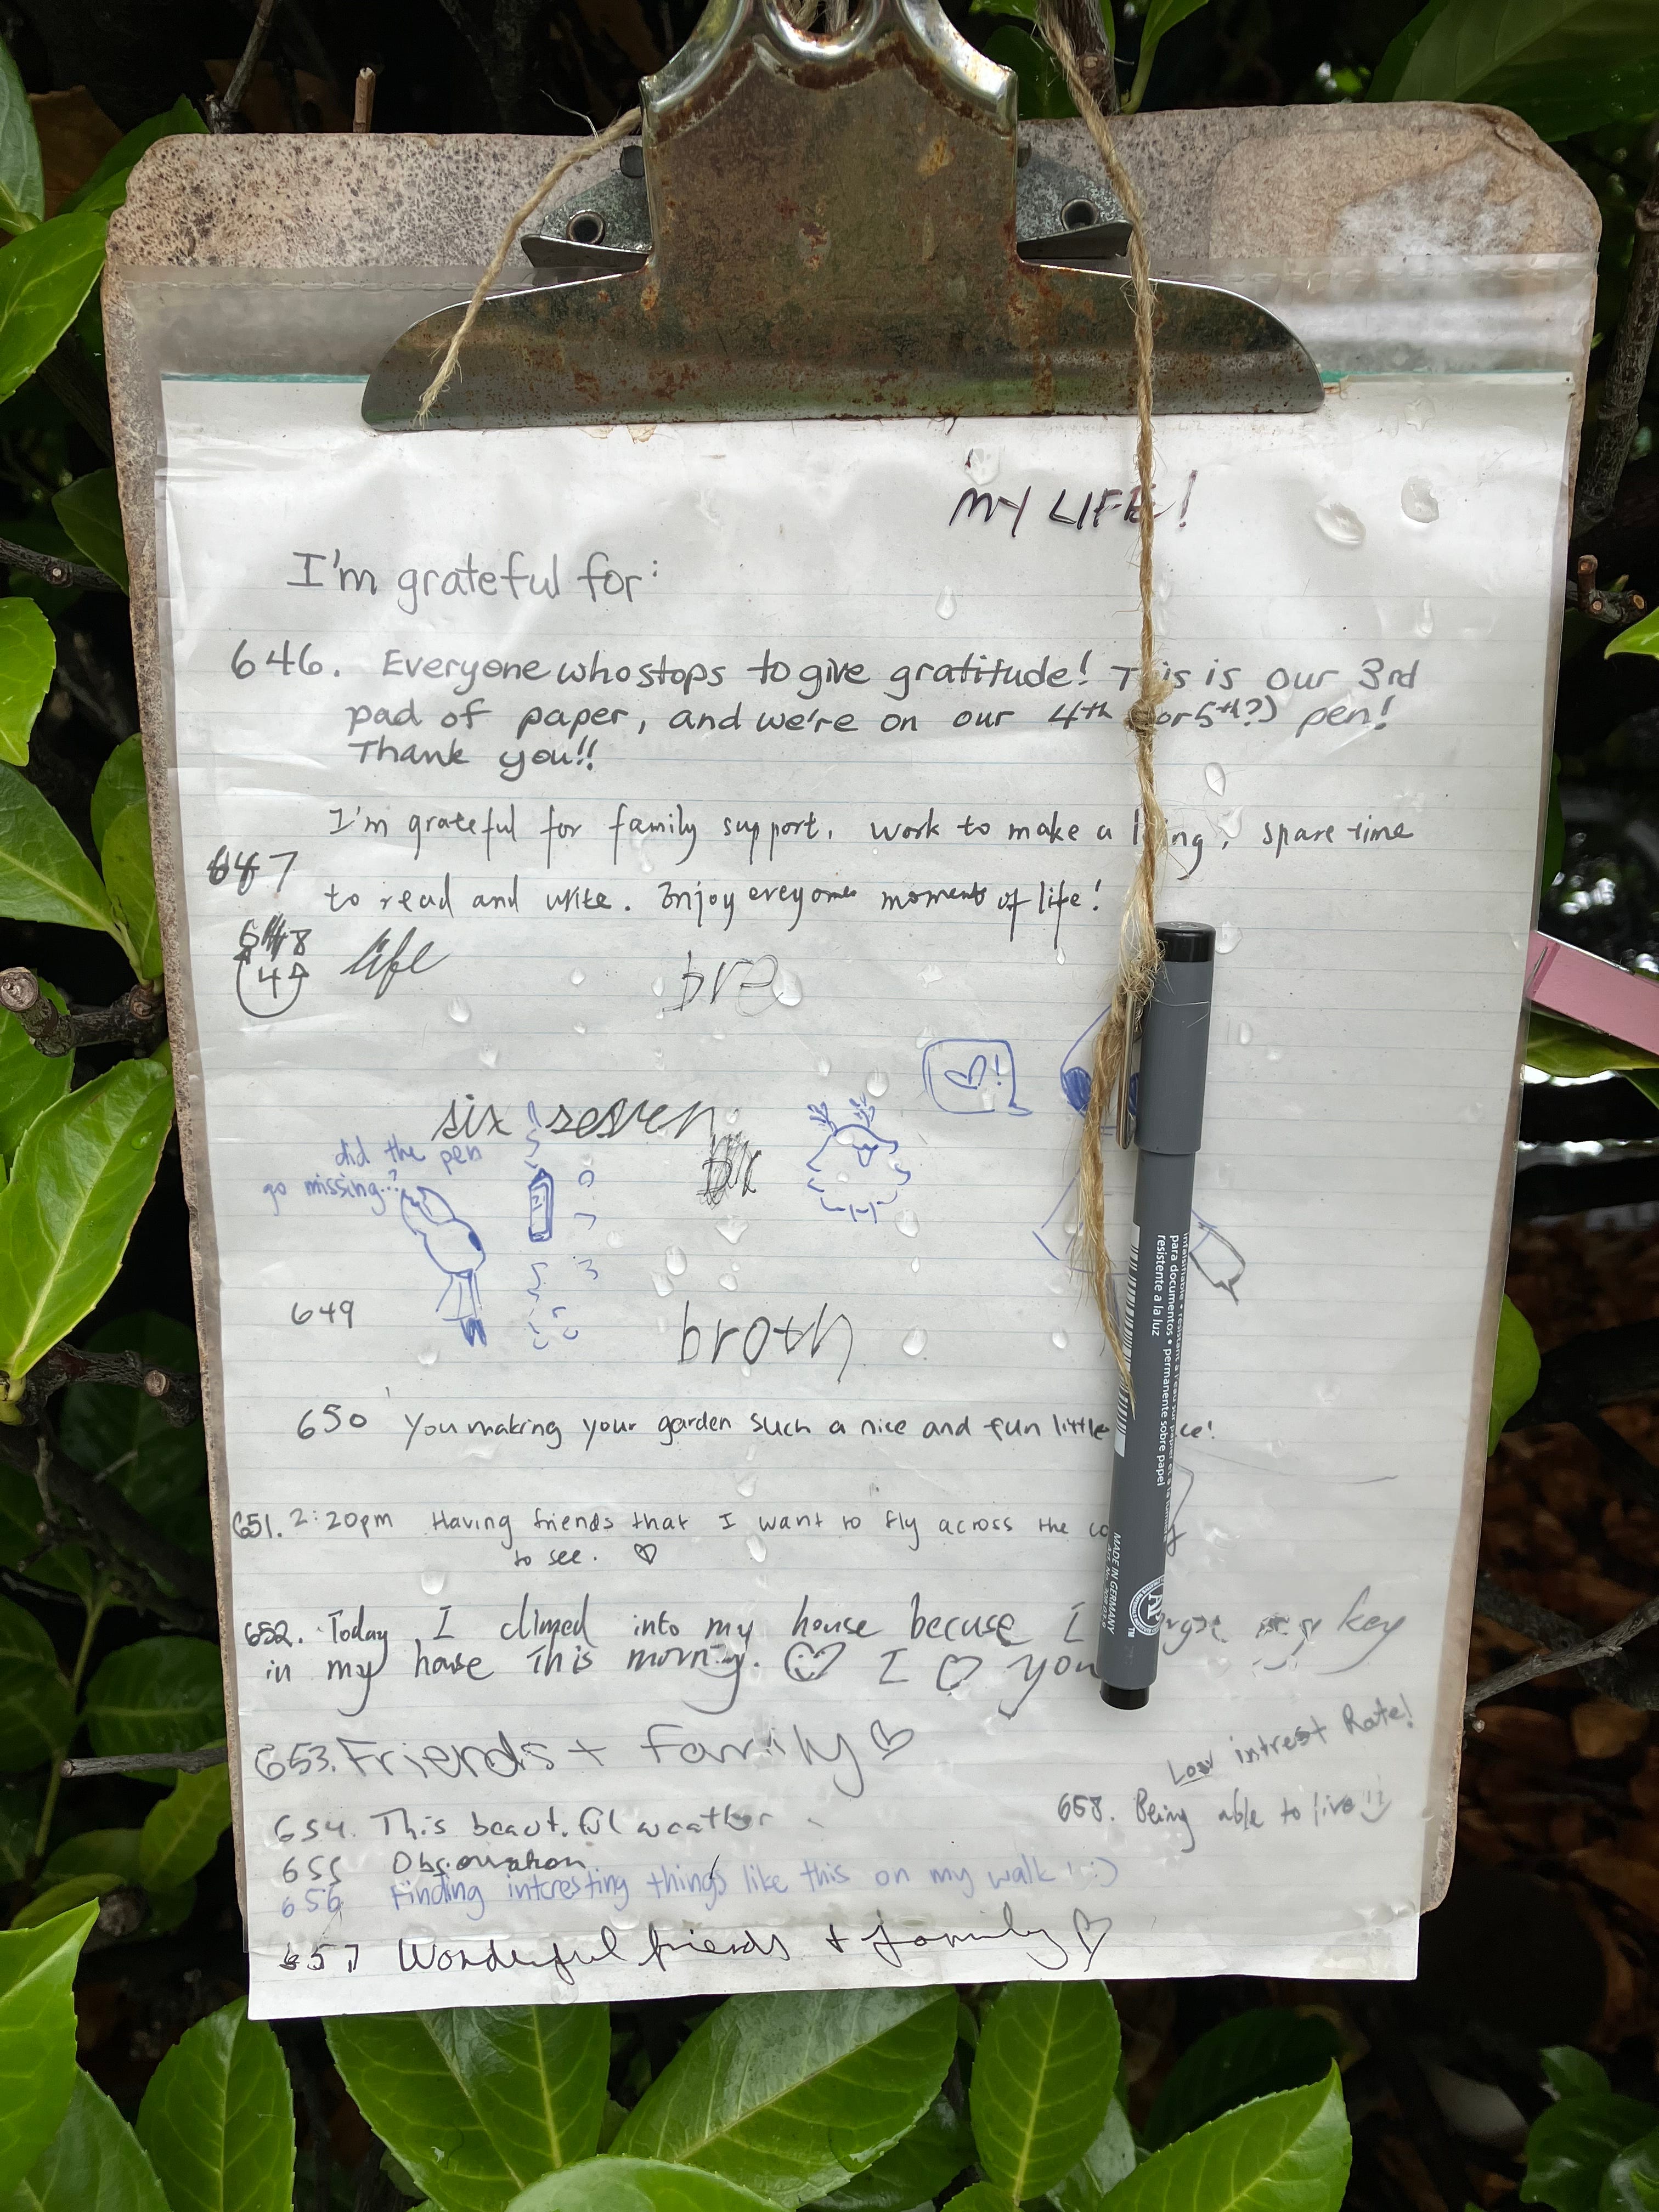 MY LIFE!
I'm grateful for:
646. Everyone who stops to give gratitude! This is our 3rd
pad of paper, and we're on our 4th (or 5th?) pen!
Thank you!!
I'm grateful for family support, work to make a living, spare time
647
to read and write. Enjoy everyone moments of life!
648
47
life
bre
♡!
six seven
did the pen
go missing..?
649
broth
650 You making your garden such a nice and fun little
651. 2:20pm Having friends that I want to fly across the
to see. ♡
652. Today I climed into my house becuse I my key
in my house This morning. I ♡ you
653. Friends + family ♡
Low intrest Rate!
654. This beautiful weather
658. Being able to live!!
655 Observation
656 Finding interesting things like this on my walk! :)
657 Wonderful friends + family ♡
para documentos • permanente sobre papel
resistente a la luz
MADE IN GERMANY
AP